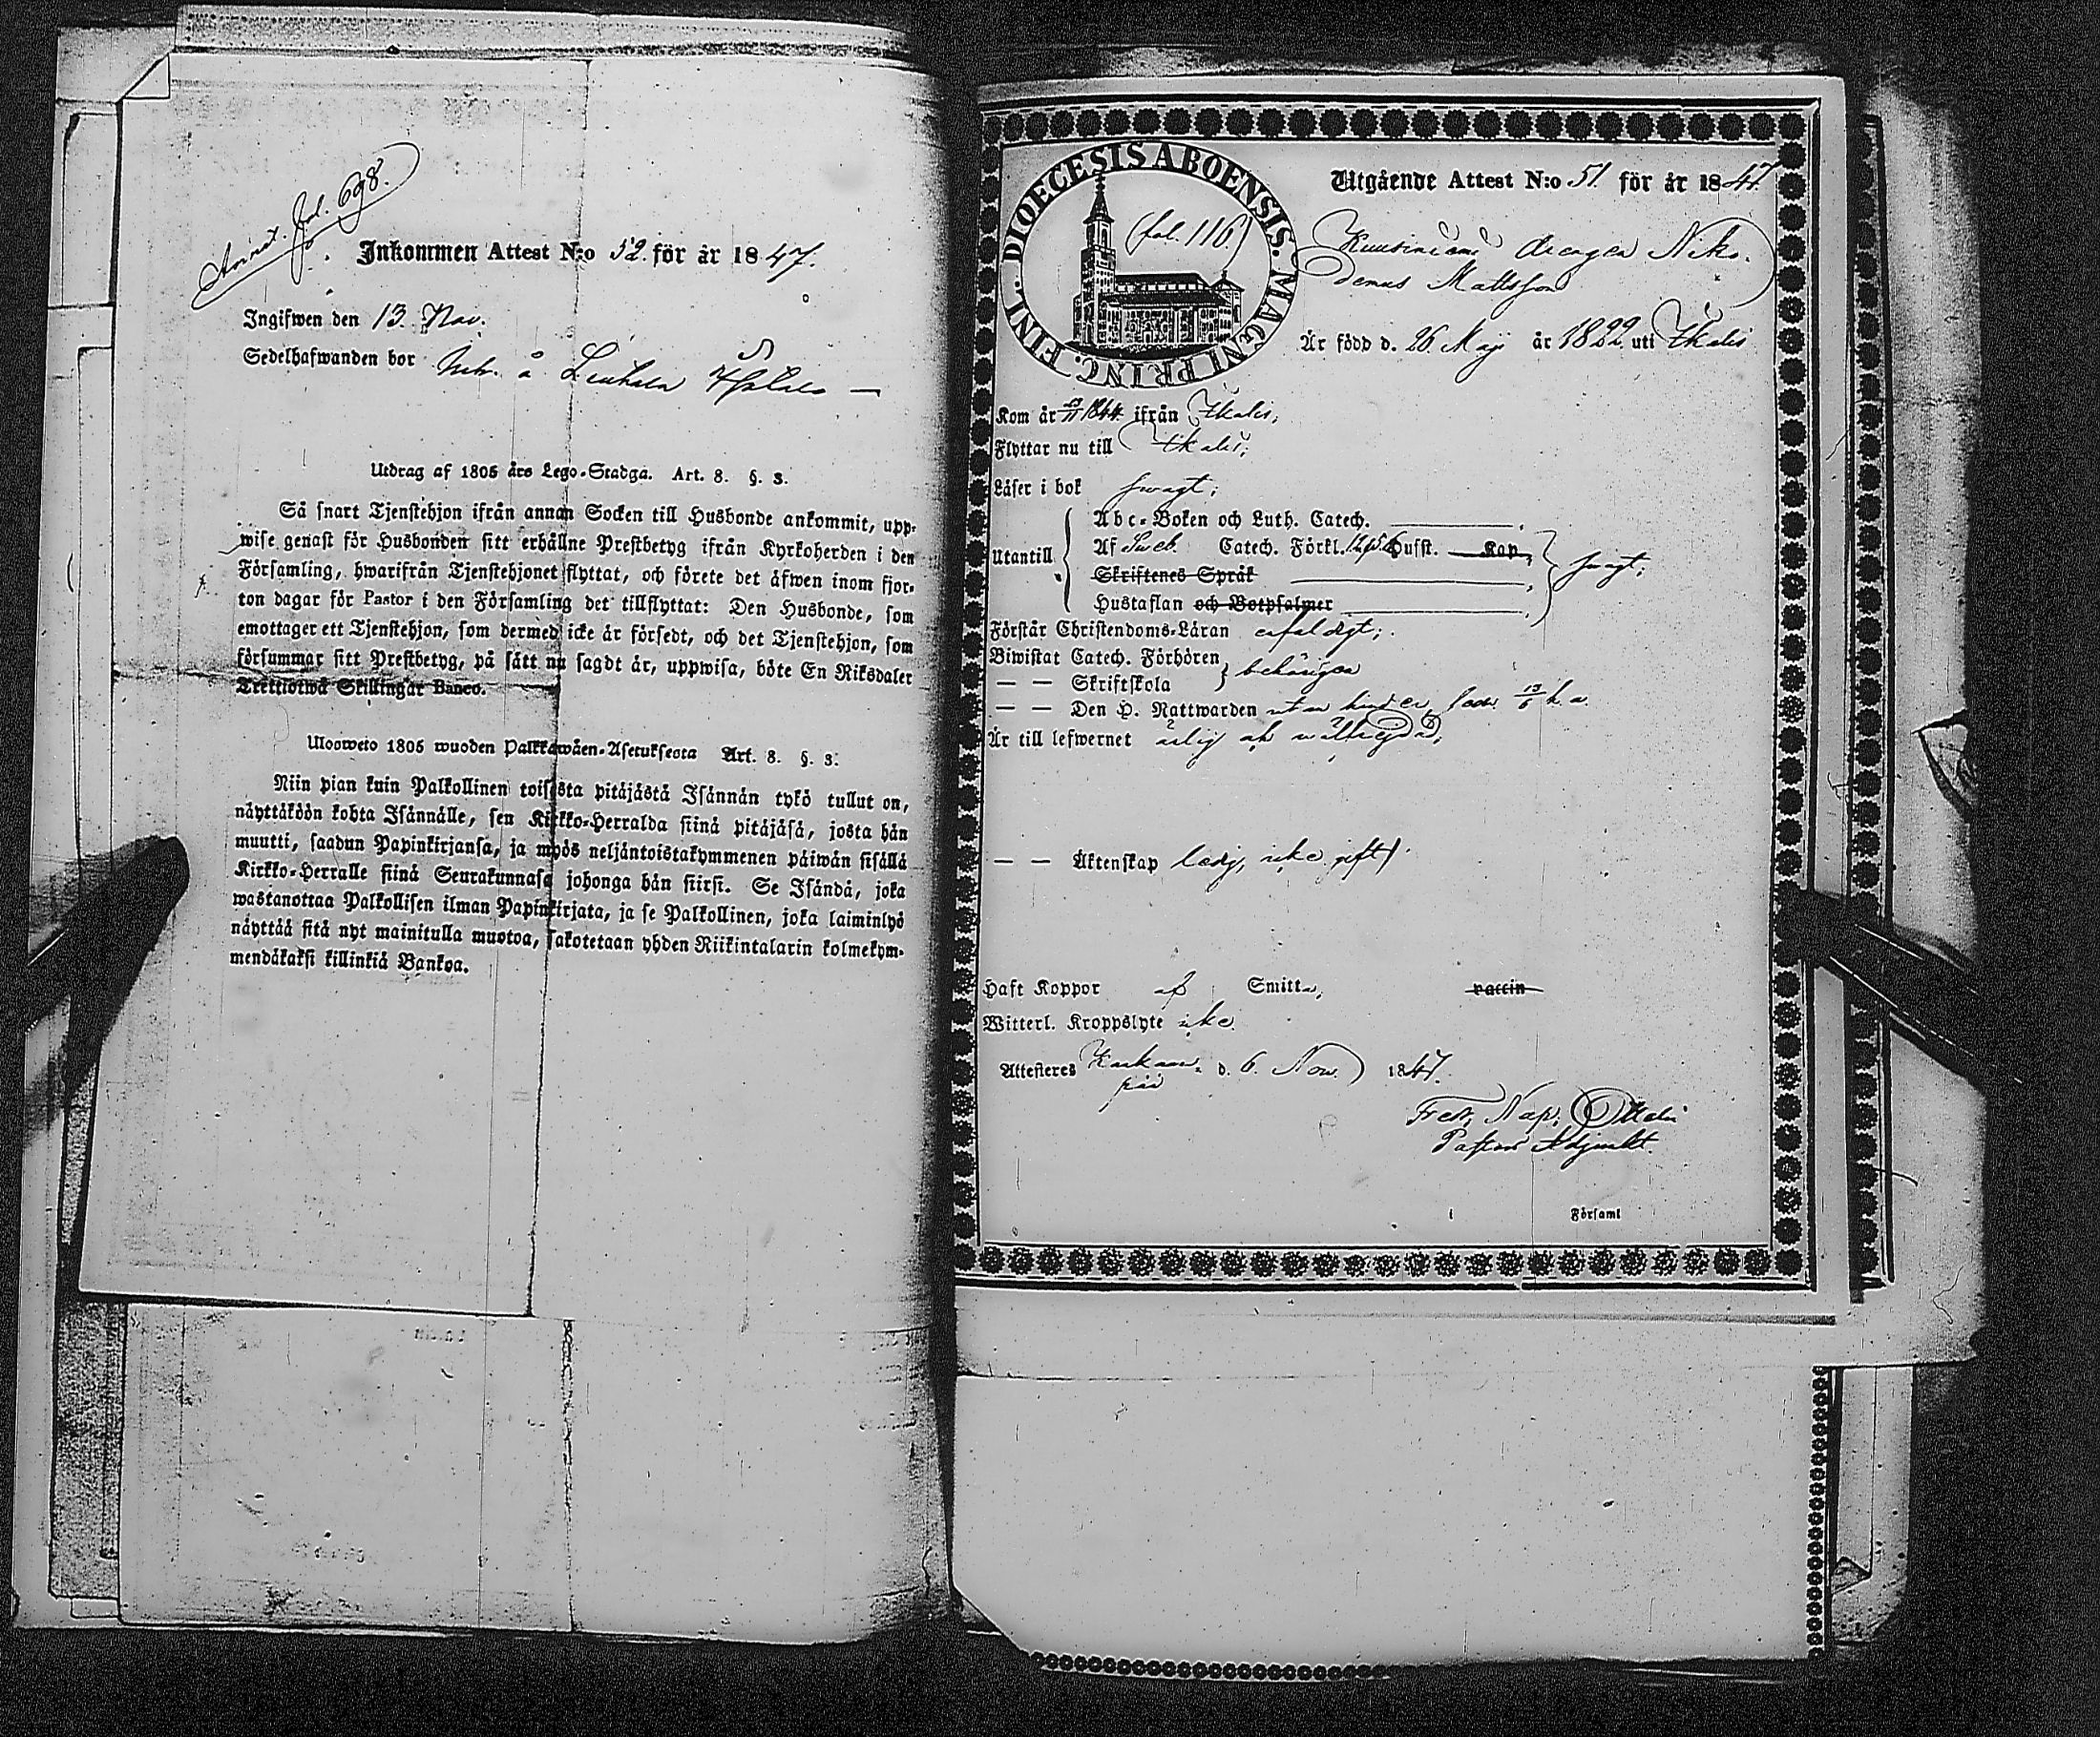 Annot. fol. 698.
Inkommen Attest N:o 52. för år 1847.
Ingifwen den 13. Nov.
Sedelhafwanden bor å
Utdrag af 1805 års Lego-Stadga. Art. 8. §. 3.
Så snart Tjenstehjon ifrån annan Socken till Husbonde ankommit, upp-
wise genast för Husbonden sitt erhållne Prestbetyg ifrån Kyrkoherden i den
Församling, hwarifrån Tjenstehjonet flyttat, och förete det äfwen inom fjor-
ton dagar för Pastor i den Församling det tillflyttat: Den Husbonde, som
emottager ett Tjenstehjon, som dermed icke är försedt, och det Tjenstehjon, som
försummar sitt Prestbetyg, på sätt nu sagdt är, uppwisa, böte En Riksdaler
Trettiotwå Skillingar Banco.
Ulosweto 1805 wuoden Palkkawäen-Asetuksesta Art. 8. §. 3.
Niin pian kuin Palkollinen toisesta pitäjästä Isännän tykö tullut on,
näyttäköön kohta Isännälle, sen Kirkko-Herralda siinä pitäjäsä, josta hän
muutti, saadun Papinkirjansa, ja myös neljäntoistakymmenen päiwän sisällä
Kirkko-Herralle siinä Seurakunnasa johonga hän siirsi. Se Isändä, joka
wastanottaa Palkollisen ilman Papinkirjata, ja se Palkollinen, joka laiminlyö
näyttää sitä nyt mainitulla muotoa, sakotetaan yhden Riikintalarin kolmekym-
mendäkaksi killinkiä Bankoa.
DIOECESIS ABOENSIS. MAGNI PRINC. FINL.
(fol. 116)
Utgående Attest N:o 51. för år 1847.
drengen Niko-
demus Mattsson
Är född d. 26 Maij år 1822 uti Ikalis
Kom år 1844 ifrån Ikalis,
Flyttar nu till Ikalis;
Läser i bok swagt;
Utantill
Abc-Boken och Luth. Catech.
Af Sweb. Catech. Förkl. Husst. Kap.
Skriftenes Språk
Hustaflan och Botpsalmer
swagt;
Förstår Christendoms-Läran enfaldigt;
Biwistat Catech. Förhören
— — Skriftskola
behörigen
— — Den H. Nattwarden utan hinder, h. a.
Är till lefwernet ärlig
— — Äktenskap ledig, icke gift
Haft Koppor af Smitta, vaccin
Witterl. Kroppslyte icke
Attesteres d. 6. Nov. 1847.
Pastors Adjunkt.
i Församl